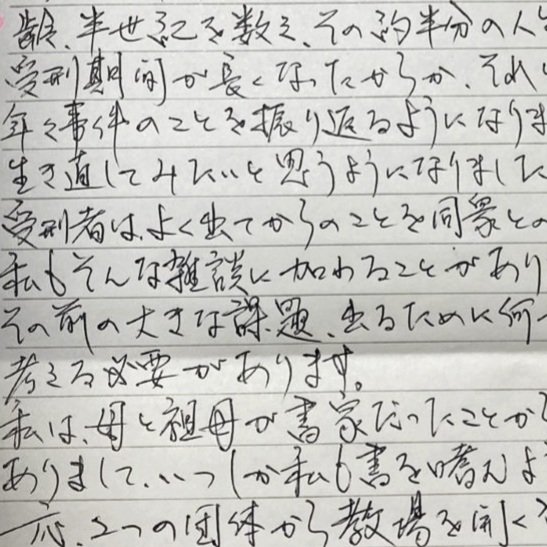 齢、半世紀を数え、その約半分の人生
受刑期間が長くなったからか、それ
年々事件のことを振り返るようになりま
生き直してみたいと思うようになりました
受刑者は、よく出てからのことを同衆との
私もそんな雑談に加わることがあり
その前の大きな課題、出るために何
考える必要があります。
私は、母と祖母が書家だったことか
ありまして、いつしか私も書を嗜むよ
応、2つの団体から教場を開く